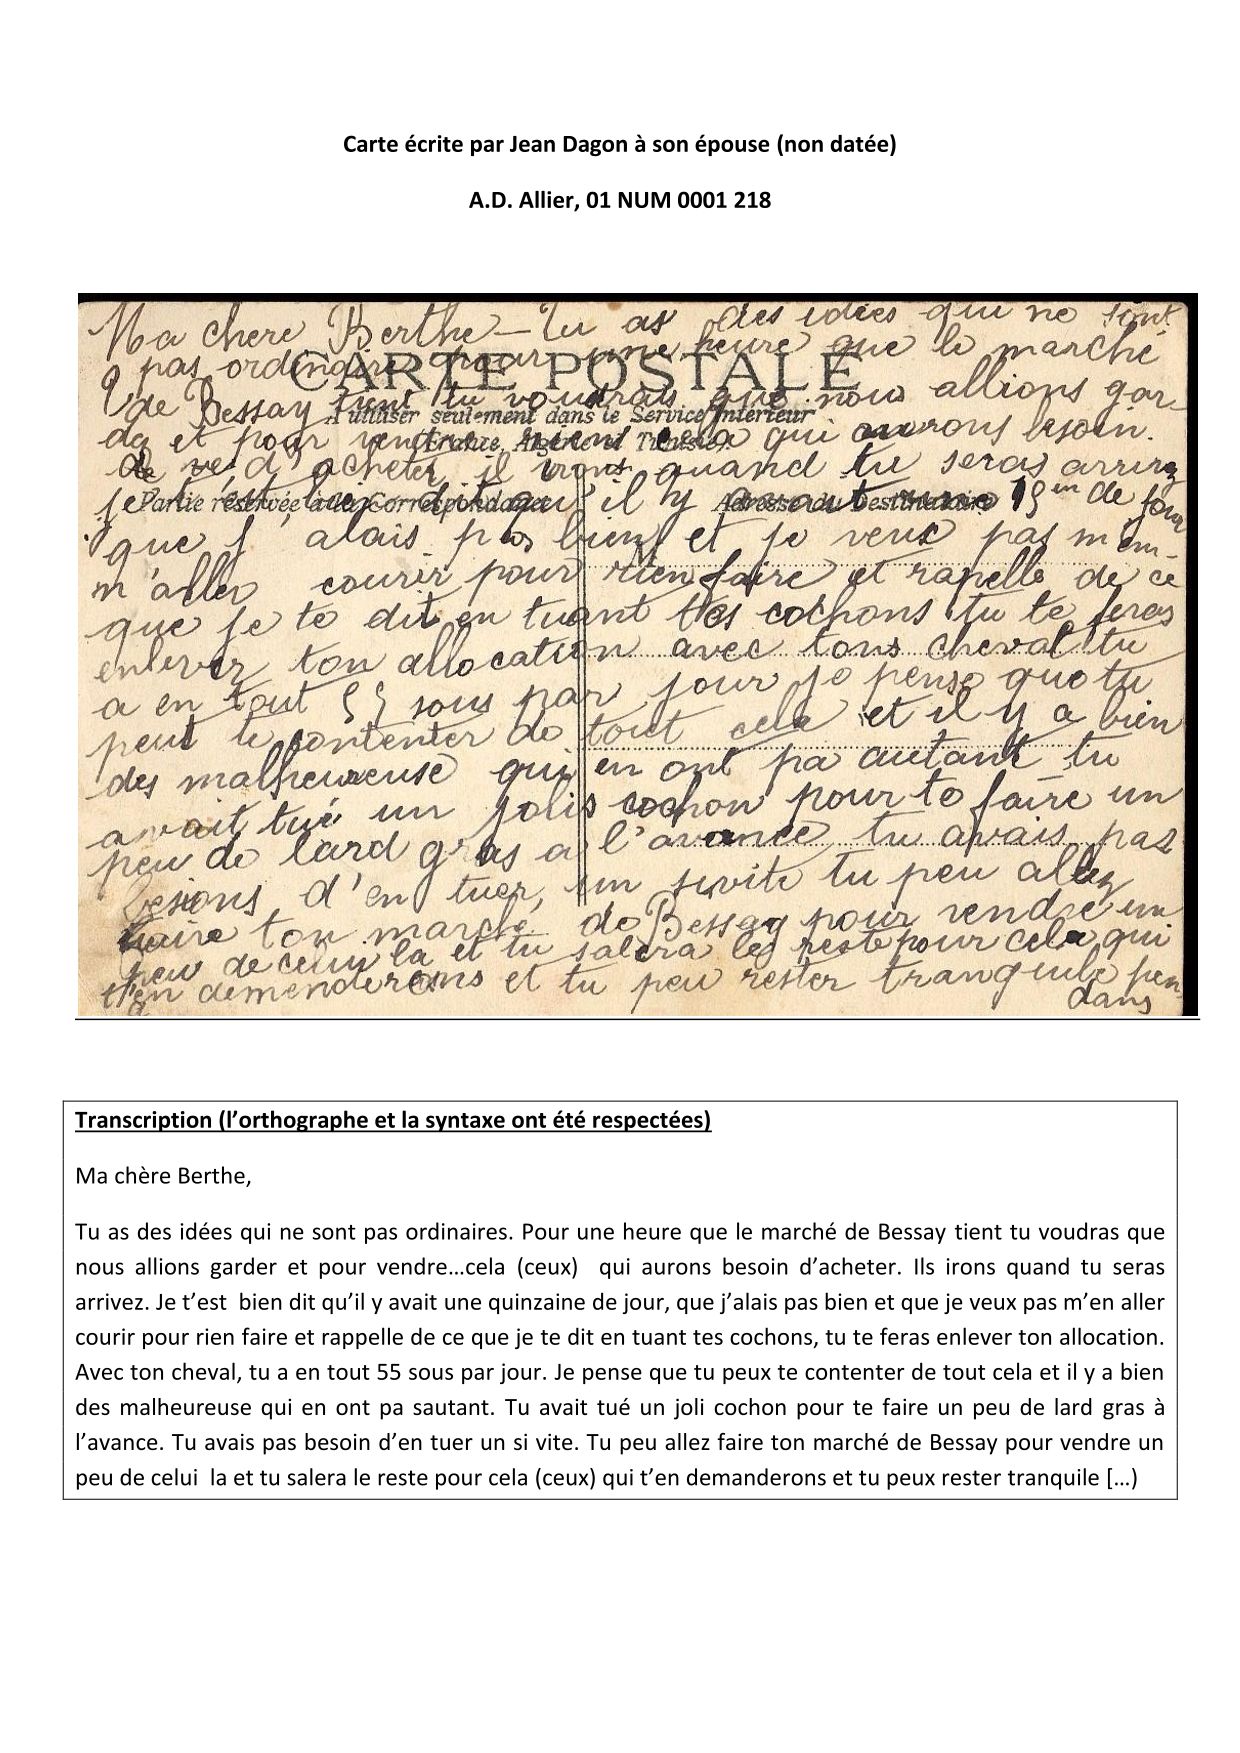 Carte écrite par Jean Dagon à son épouse (non datée)
A.D. Allier, 01 NUM 0001 218
Ma chere Berthe – Tu as des idées qui ne sont
pas ordinaire pour une heure que le marché
CARTE POSTALE
de Bessay tient tu voudrais que nous allions gar-
A utiliser seulement dans le Service Intérieur
de et pour vendre cela qui aurons besoin.
(France, Algérie et Tunisie)
d'acheter il irons quand tu seras arrivez
Partie réservée à la Correspondance
Adresse du Destinataire
je t'est bien dit qu'il y avait une 15en de jour
que j'alais pas bien et je veux pas m'em-
M
m'aller courir pour rien faire et rapelle de ce
que je te dit en tuant tes cochons tu te feras
enlever ton allocation avec tons cheval tu
a en tout 55 sous par jour je pense que tu
peut te contenter de tout cela et il y a bien
des malheureuse qui en ont pa autant tu
avait tué un jolis cochon pour te faire un
peu de lard gras a l'avance tu avais pas
besions d'en tuer, un sivite tu peu allez
faire ton marché de Bessay pour vendre un
peu de celui la et tu salera le reste pour cela qui
t'en demenderons et tu peu rester tranquile pen
dans
Transcription (l'orthographe et la syntaxe ont été respectées)
Ma chère Berthe,
Tu as des idées qui ne sont pas ordinaires. Pour une heure que le marché de Bessay tient tu voudras que
nous allions garder et pour vendre…cela (ceux) qui aurons besoin d'acheter. Ils irons quand tu seras
arrivez. Je t'est bien dit qu'il y avait une quinzaine de jour, que j'alais pas bien et que je veux pas m'en aller
courir pour rien faire et rappelle de ce que je te dit en tuant tes cochons, tu te feras enlever ton allocation.
Avec ton cheval, tu a en tout 55 sous par jour. Je pense que tu peux te contenter de tout cela et il y a bien
des malheureuse qui en ont pa sautant. Tu avait tué un joli cochon pour te faire un peu de lard gras à
l'avance. Tu avais pas besoin d'en tuer un si vite. Tu peu allez faire ton marché de Bessay pour vendre un
peu de celui la et tu salera le reste pour cela (ceux) qui t'en demanderons et tu peux rester tranquile […)